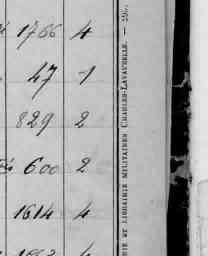 1766 4
47 1
829 2
600 2
1614 4
4
ET LIBRAIRIE MILITAIRES CHARLES-LAVAUZELLE. —